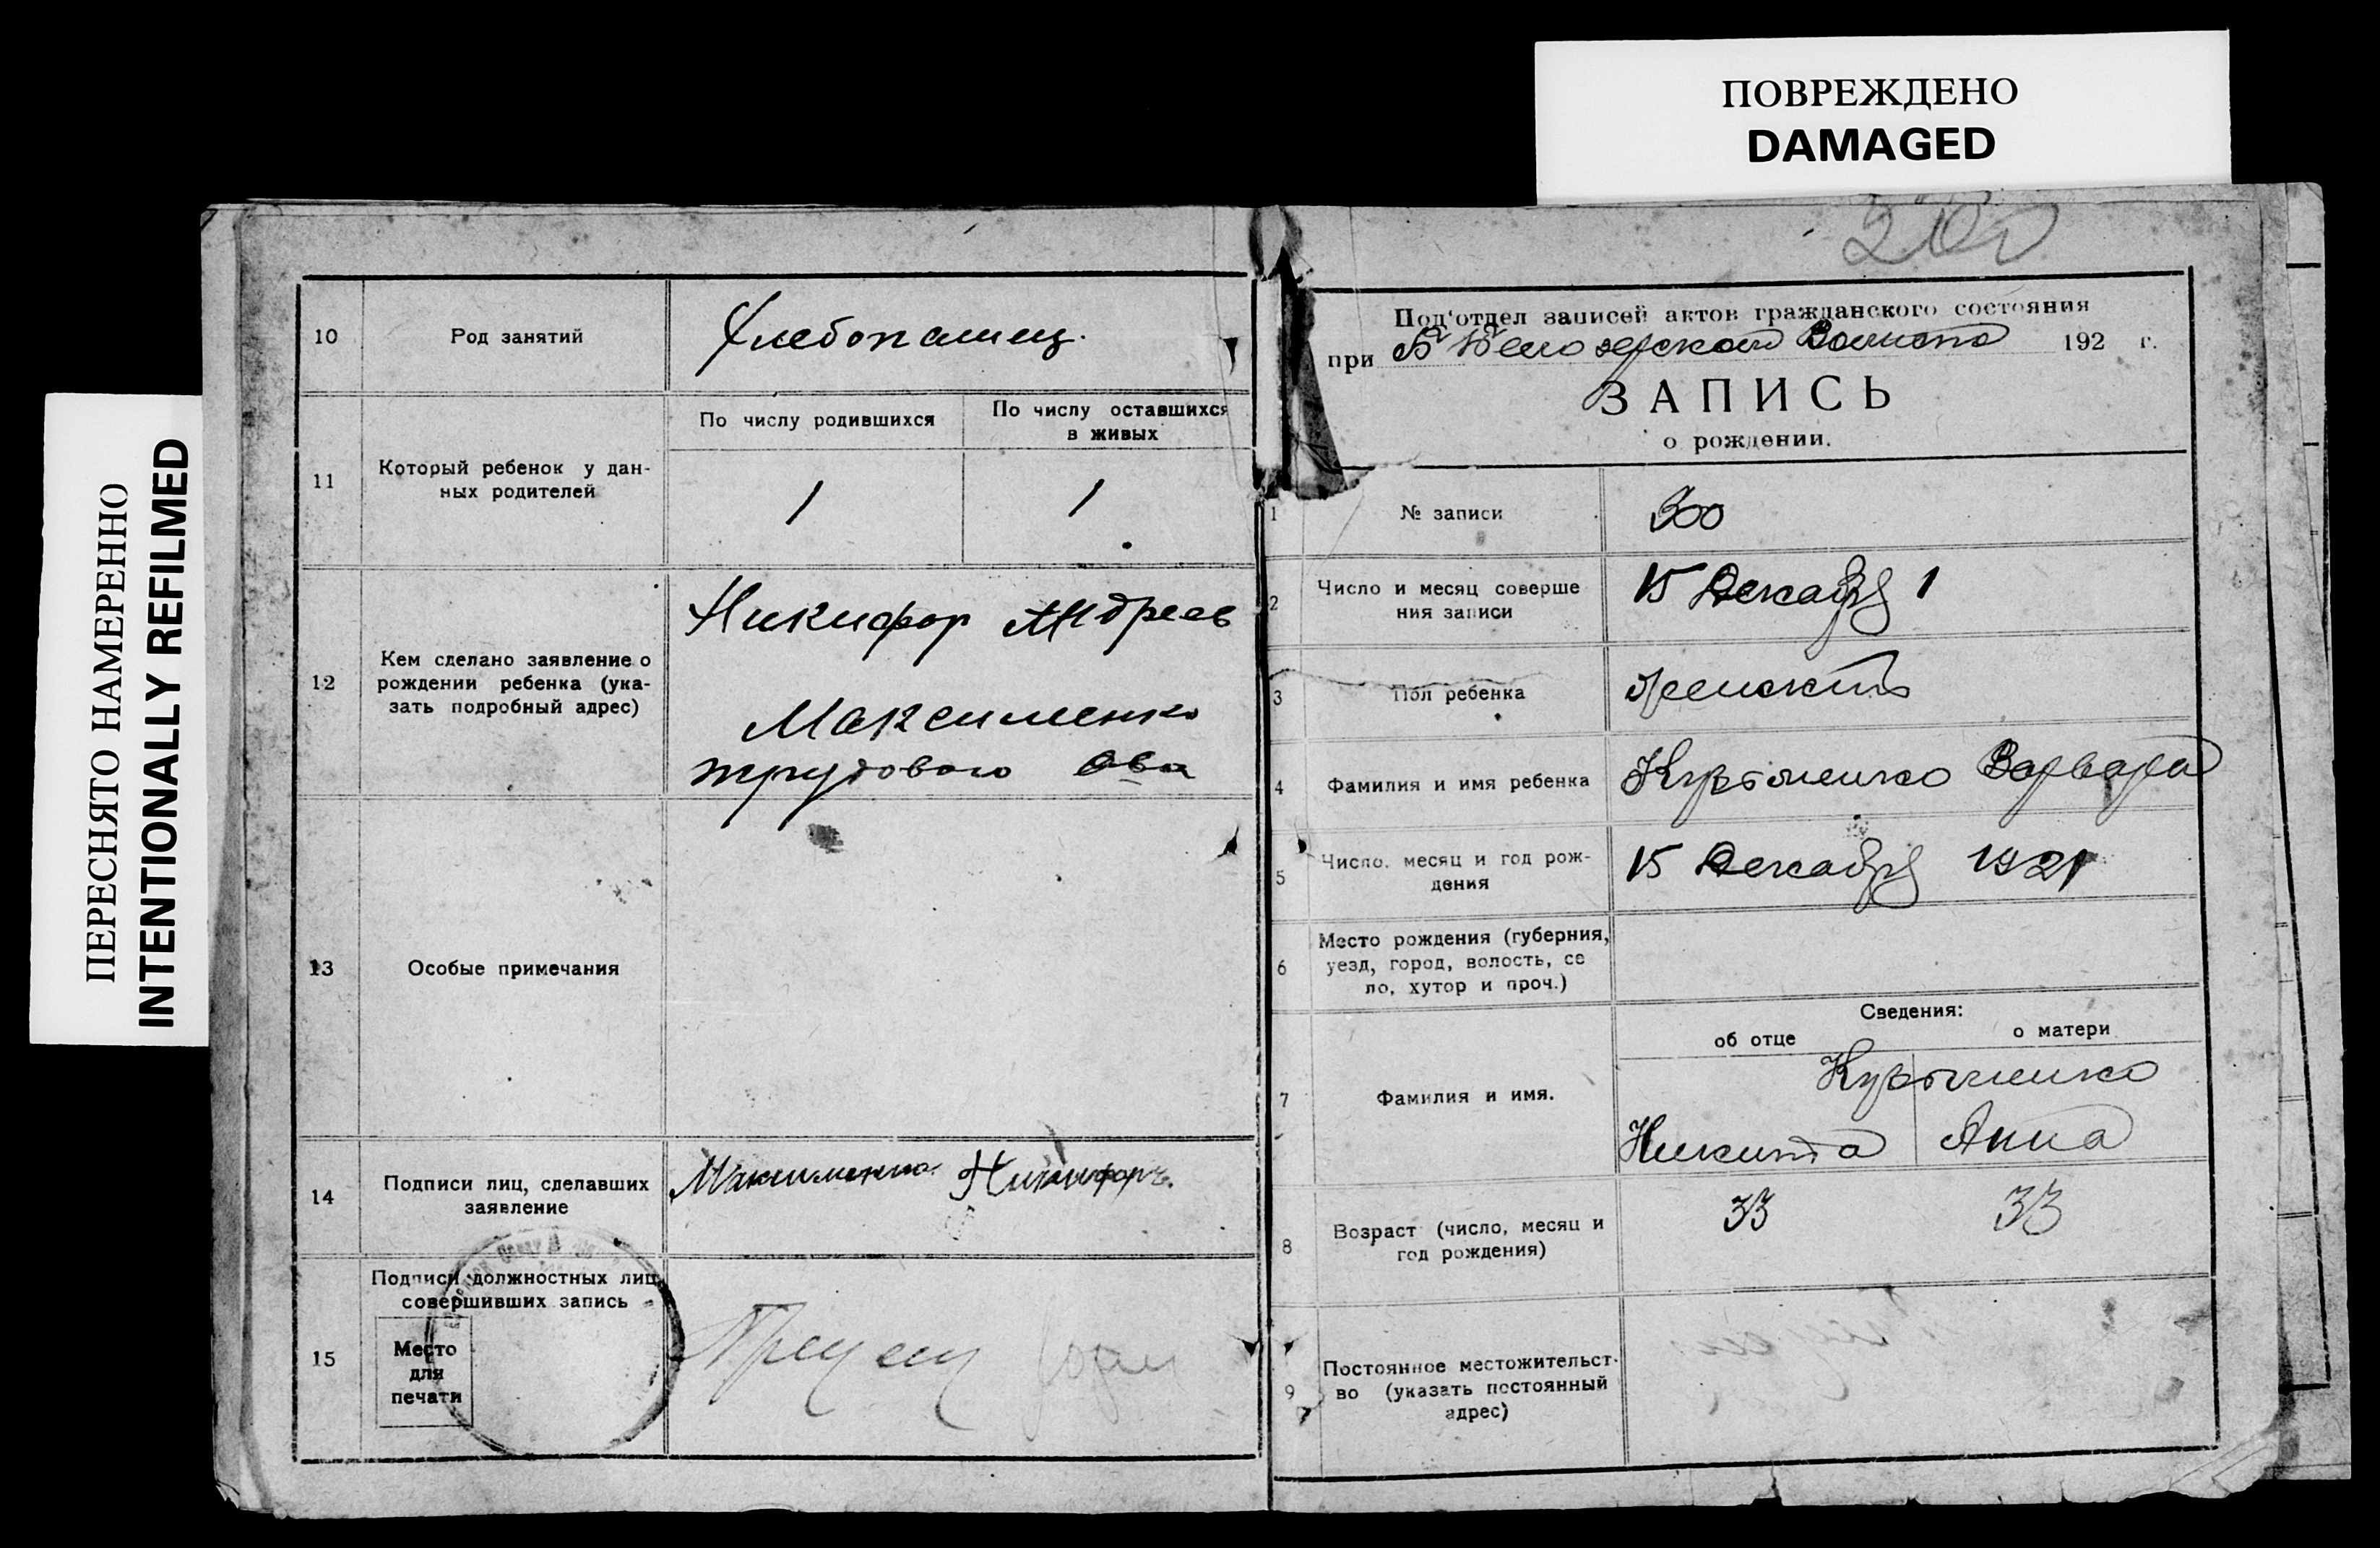 ПОВРЕЖДЕНО
DAMAGED
ПЕРЕСНЯТО НАМЕРЕННО
INTENTIONALLY REFILMED
10
Род занятий
Хлебопашец.
11
Который ребенок у дан-
ных родителей
По числу родившихся
По числу оставшихся
в живых
1
1
12
Кем сделано заявление о
рождении ребенка (ука-
зать подробный адрес)
Никифор Андреев
Максименко
трудового Ова
13
Особые примечания
14
Подписи лиц, сделавших
заявление
Максименко Никифоръ.
15
Подписи должностных лиц,
совершивших запись
Место
для
печати
200
Под'отдел записей актов гражданского состояния
при Белозерском 192 г.
ЗАПИСЬ
о рождении.
1
№ записи
300
2
Число и месяц соверше
ния записи
15 Декабря 1
3
Пол ребенка
женский
4
Фамилия и имя ребенка
Варвара
5
Число, месяц и год рож-
дения
15 Декабря 1921
6
Место рождения (губерния,
уезд, город, волость, се
ло, хутор и проч.)
Сведения:
об отце
о матери
7
Фамилия и имя.
Никита
Анна
8
Возраст (число, месяц и
год рождения)
33
33
9
Постоянное местожительст-
во (указать постоянный
адрес)